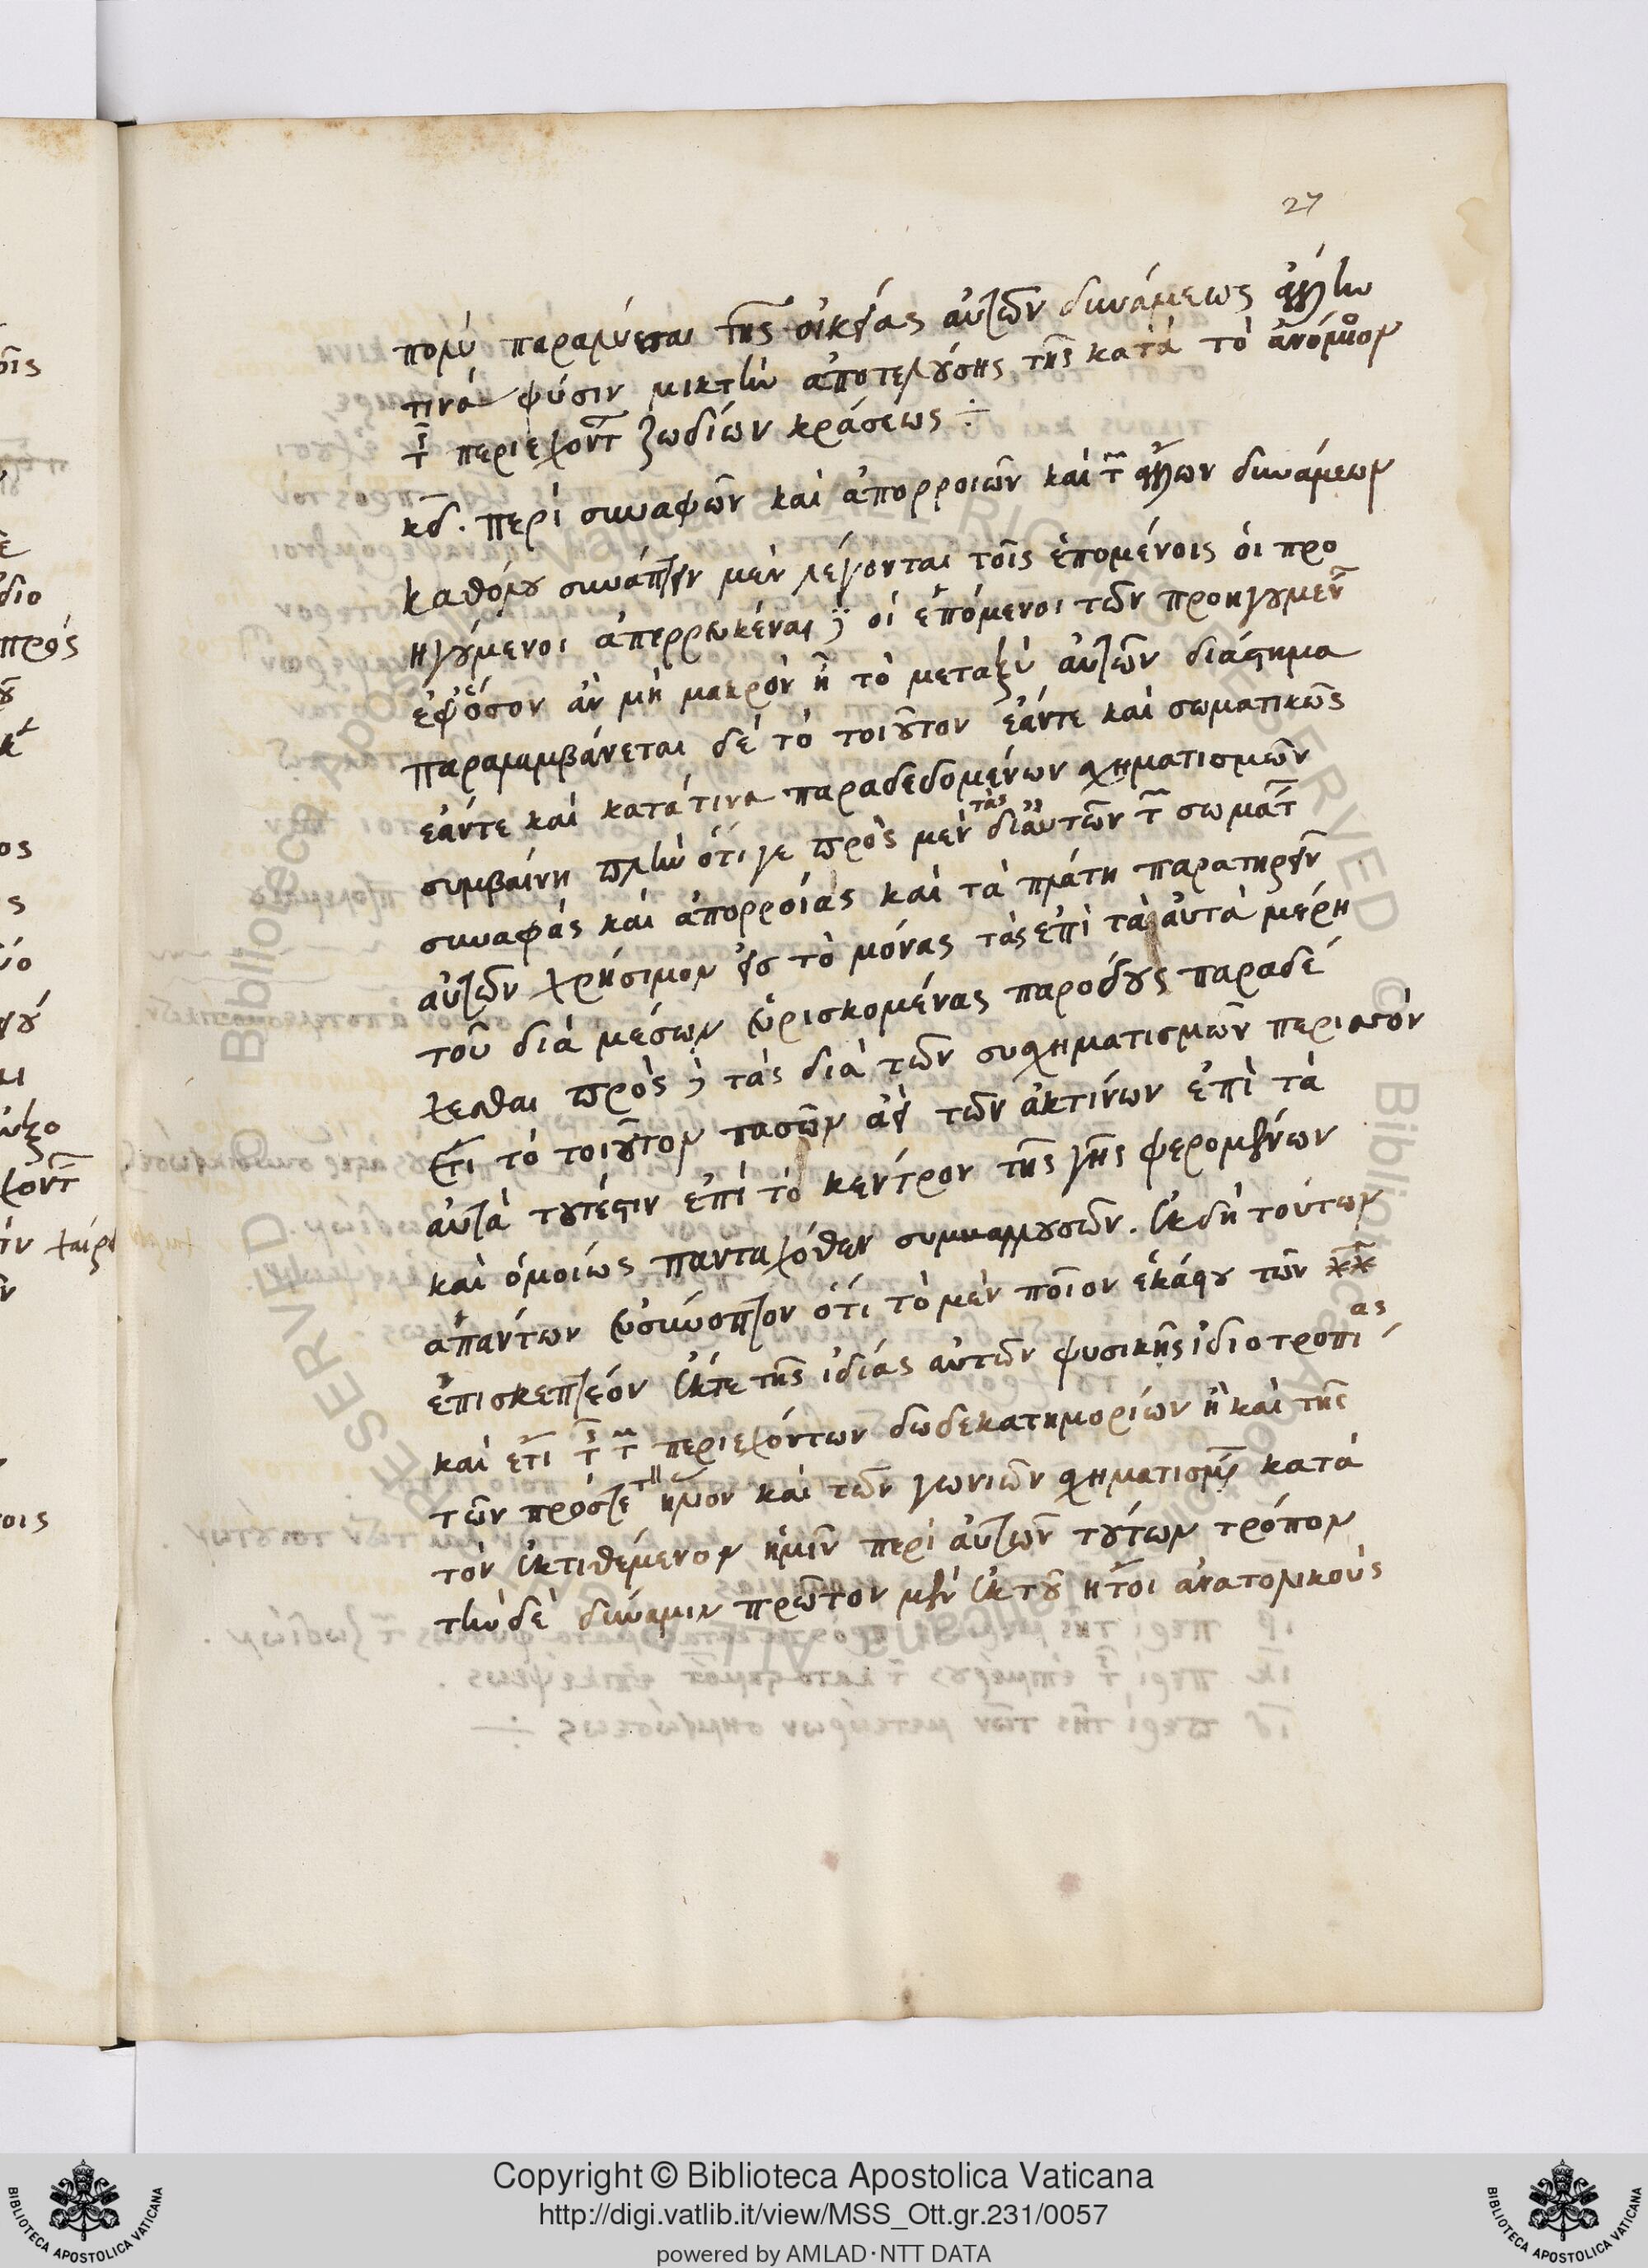 27
πολὺ παραλύεται τῆς οἰκείας αὐτῶν δυνάμεως ἄλλην
τινὰ φύσιν μικτὴν ἀποτελούσης τῆς κατὰ τὸ ἀνόμοιον
τ περιεχόντ ζωδίων κράσεως ÷
κδ. περὶ συναφῶν καὶ ἀπορροιῶν καὶ τ ἄλλων δυνάμεων
καθόλου συνάπτειν μὲν λέγονται τοῖς ἑπομένοις οἱ προ
ηγούμενοι ἀπερρυκέναι δὲ οἱ ἑπόμενοι τῶν προηγουμέν
ἐφ ὅσον ἂν μὴ μακρὸν ἦ τὸ μεταξὺ αὐτῶν διάστημα
παραλαμβάνεται δὲ τὸ τοιοῦτον ἐάντε καὶ σωματικῶς
ἐάντε καὶ κατά τινα παραδεδομένων σχηματισμῶν
συμβαίνη πλὴν ὅτι γε πρὸς μὲν τὰς δι αὐτῶν τ σωμάτ
συναφὰς καὶ ἀπορροίας καὶ τὰ πλάτη παρατηρεῖν
αὐτῶν χρήσιμον εἰσ τὸ μόνας τὰς ἐπὶ τὰ αὐτὰ μέρη
τοῦ διὰ μέσων εὑρισκομένας παρόδους παραδέ
χεσθαι πρὸς δὲ τὰς διὰ τῶν συσχηματισμῶν περισσόν
ἐστι τὸ τοιοῦτον πασῶν ἀεὶ τῶν ἀκτίνων ἐπὶ τὰ
αὐτὰ τουτέστιν ἐπὶ τὸ κέντρον τῆς γῆς φερομένων
καὶ ὁμοίως πανταχόθεν συμβαλλουσῶν. ἐκ δὴ τούτων
ἁπάντων εὐσύνοπτον ὅτι τὸ μὲν ποῖον ἑκάστου τῶν ⁎⁎
ἐπισκεπτέον ἔκ τε τῆς ἰδίας αὐτῶν φυσικῆς ἰδιοτροπίας
καὶ ἔτι τ τ περιεχόντων δωδεκατημορίων ἢ καὶ τῆς
τῶν πρός τε τ ἥλιον καὶ τῶν γωνιῶν σχηματισμ κατὰ
τὸν ἐκτιθέμενον ἡμῖν περὶ αὐτῶν τούτων τρόπον
τὴν δὲ δύναμιν πρῶτον μὲν ἐκ τοῦ ἤτοι ἀνατολικοὺς
Copyright © Biblioteca Apostolica Vaticana
http://digi.vatlib.it/view/MSS_Ott.gr.231/0057
powered by AMLAD·NTT DATA